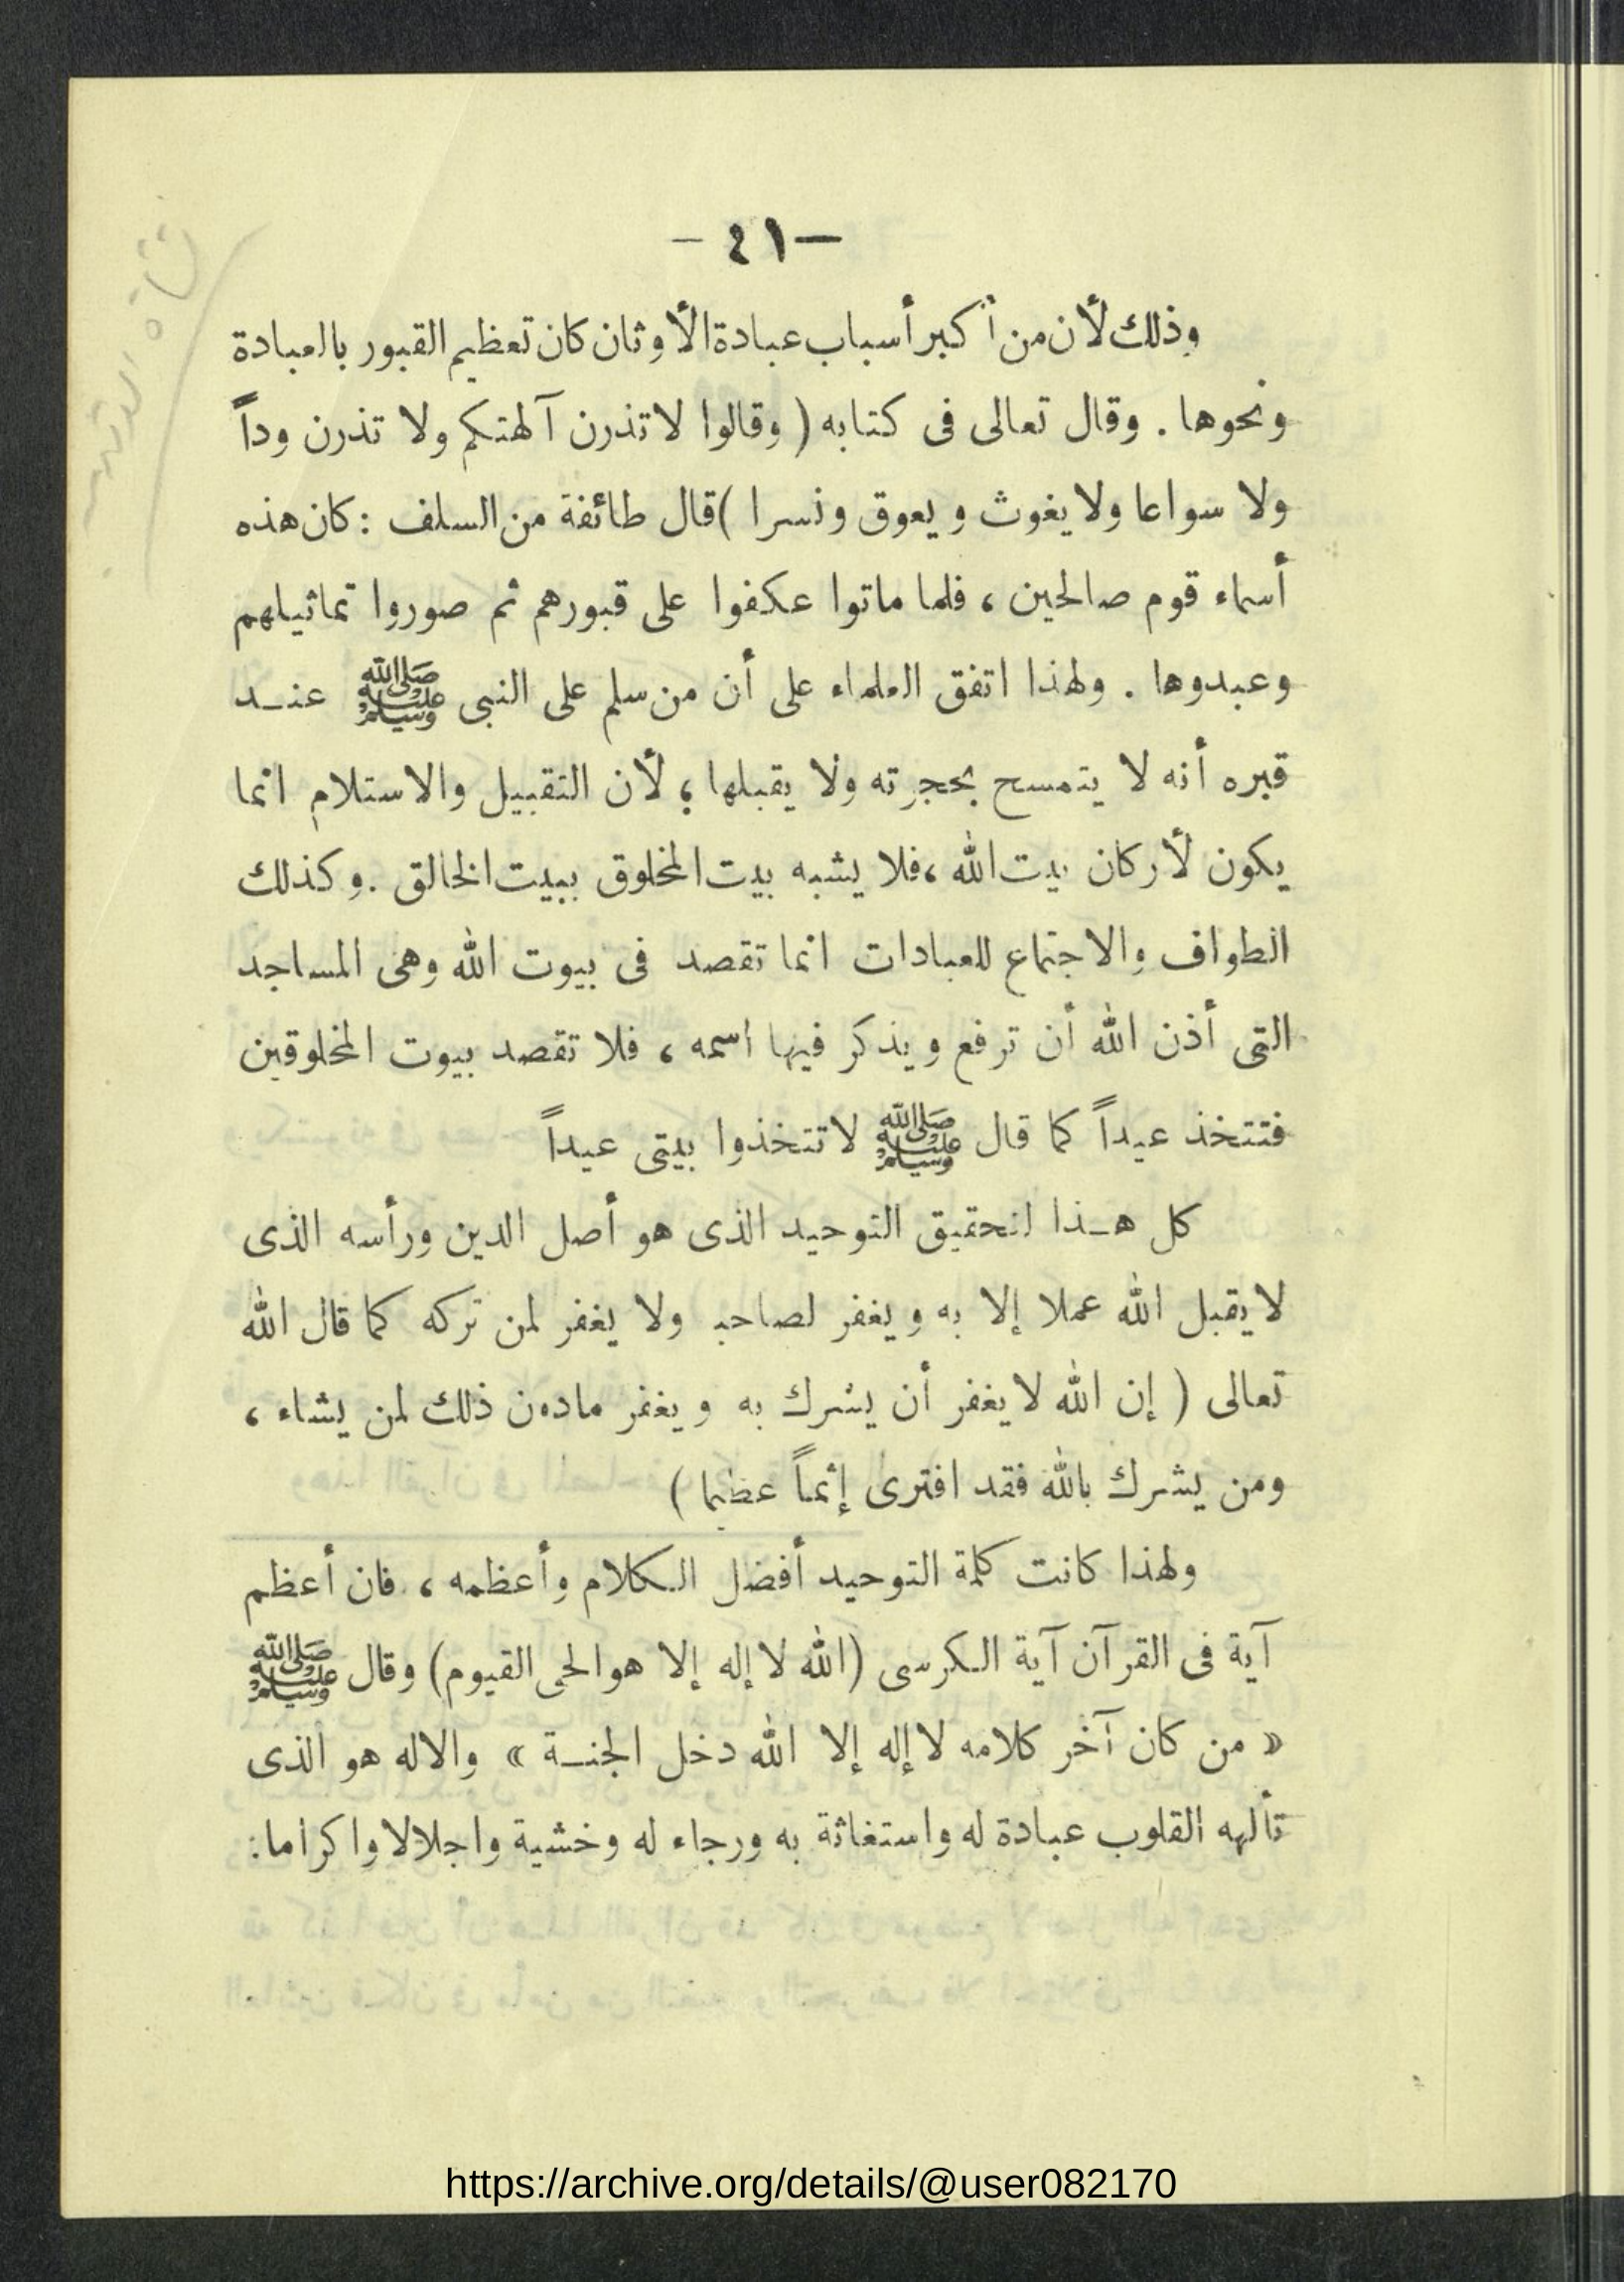 — ٤١ —
وذلك لأن من أكبر أسباب عبادة الأوثان كان تعظيم القبور بالعبادة
ونحوها . وقال تعالى فى كتابه ( وقالوا لا تذرن آلهتكم ولا تذرن وداً
ولا سواعا ولا يغوث ويعوق ونسرا ) قال طائفة من السلف : كان هذه
أسماء قوم صالحين ، فلما ماتوا عكفوا على قبورهم ثم صوروا تماثيلهم
وعبدوها . ولهذا اتفق العلماء على أن من سلم على النبى ﷺ عنـد
قبره أنه لا يتمسح بحجرته ولا يقبلها ؛ لأن التقبيل والاستلام انما
يكون لأركان بيت الله ، فلا يشبه بيت المخلوق ببيت الخالق . وكذلك
الطواف والاجتماع للعبادات انما تقصد فى بيوت الله وهى المساجد
التى أذن الله أن ترفع ويذكر فيها اسمه ، فلا تقصد بيوت المخلوقين
فتتخذ عيداً كما قال ﷺ لا تتخذوا بيتى عيداً
كل هـذا لتحقيق التوحيد الذى هو أصل الدين ورأسه الذى
لا يقبل الله عملا إلا به ويغفر لصاحبه ولا يغفر لمن تركه كما قال الله
تعالى ( إن الله لا يغفر أن يشرك به ويغفر مادون ذلك لمن يشاء ،
ومن يشرك بالله فقد افترى إثماً عظيما )
ولهذا كانت كلمة التوحيد أفضل الـكلام وأعظمه ، فان أعظم
آية فى القرآن آية الـكرسى (الله لا إله إلا هو الحى القيوم) وقال ﷺ
« من كان آخر كلامه لا إله إلا الله دخل الجنـة » والاله هو الذى
تألهه القلوب عبادة له واستغاثة به ورجاء له وخشية واجلالا واكراما :
https://archive.org/details/@user082170